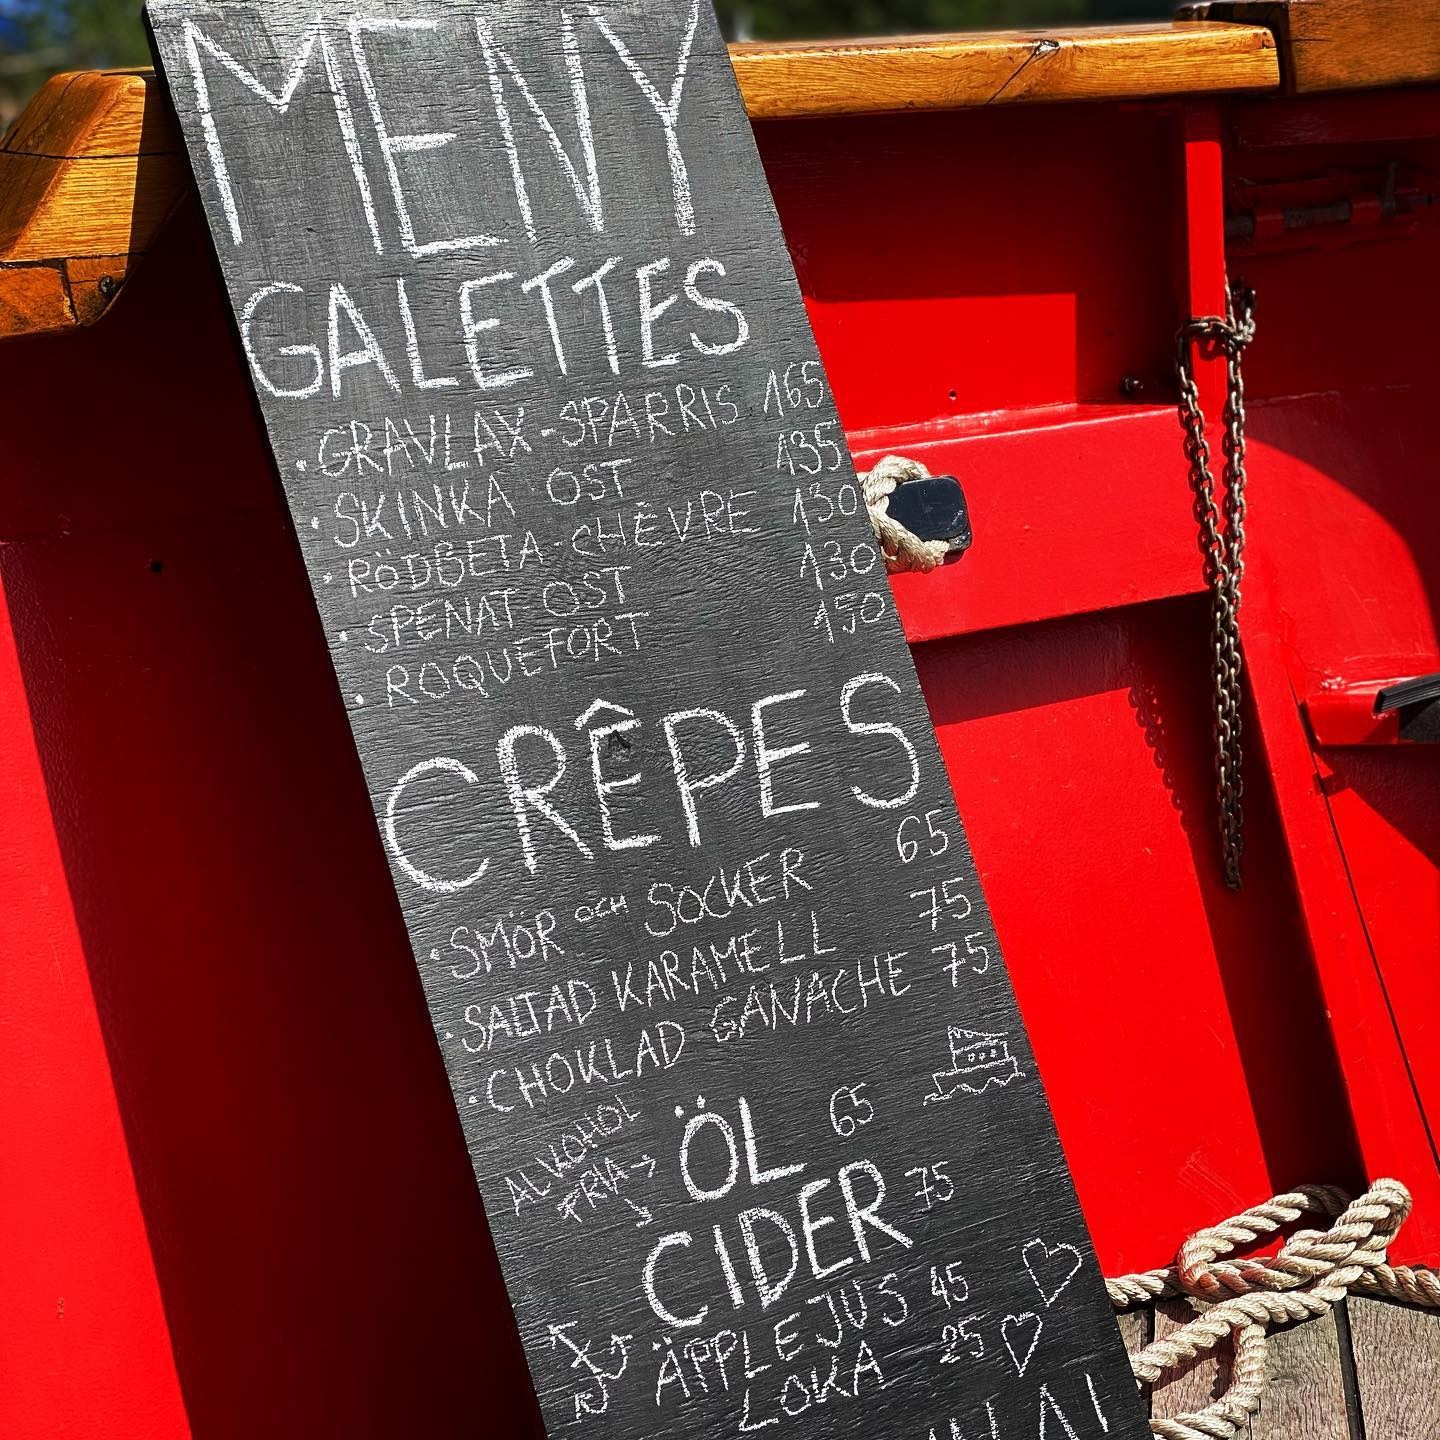 MENY
GALETTES
• GRAVLAX-SPARRIS 165
• SKINKA OST 135
• RÖDBETA-CHÈVRE 130
• SPENAT-OST 130
• ROQUEFORT 150
CRÊPES
• SMÖR OCH SOCKER 65
• SALTAD KARAMELL 75
• CHOKLAD GANACHE 75
ALKOHOL
FRIA →
ÖL 65
CIDER 75
ÄPPLEJUS 45
LOKA 25